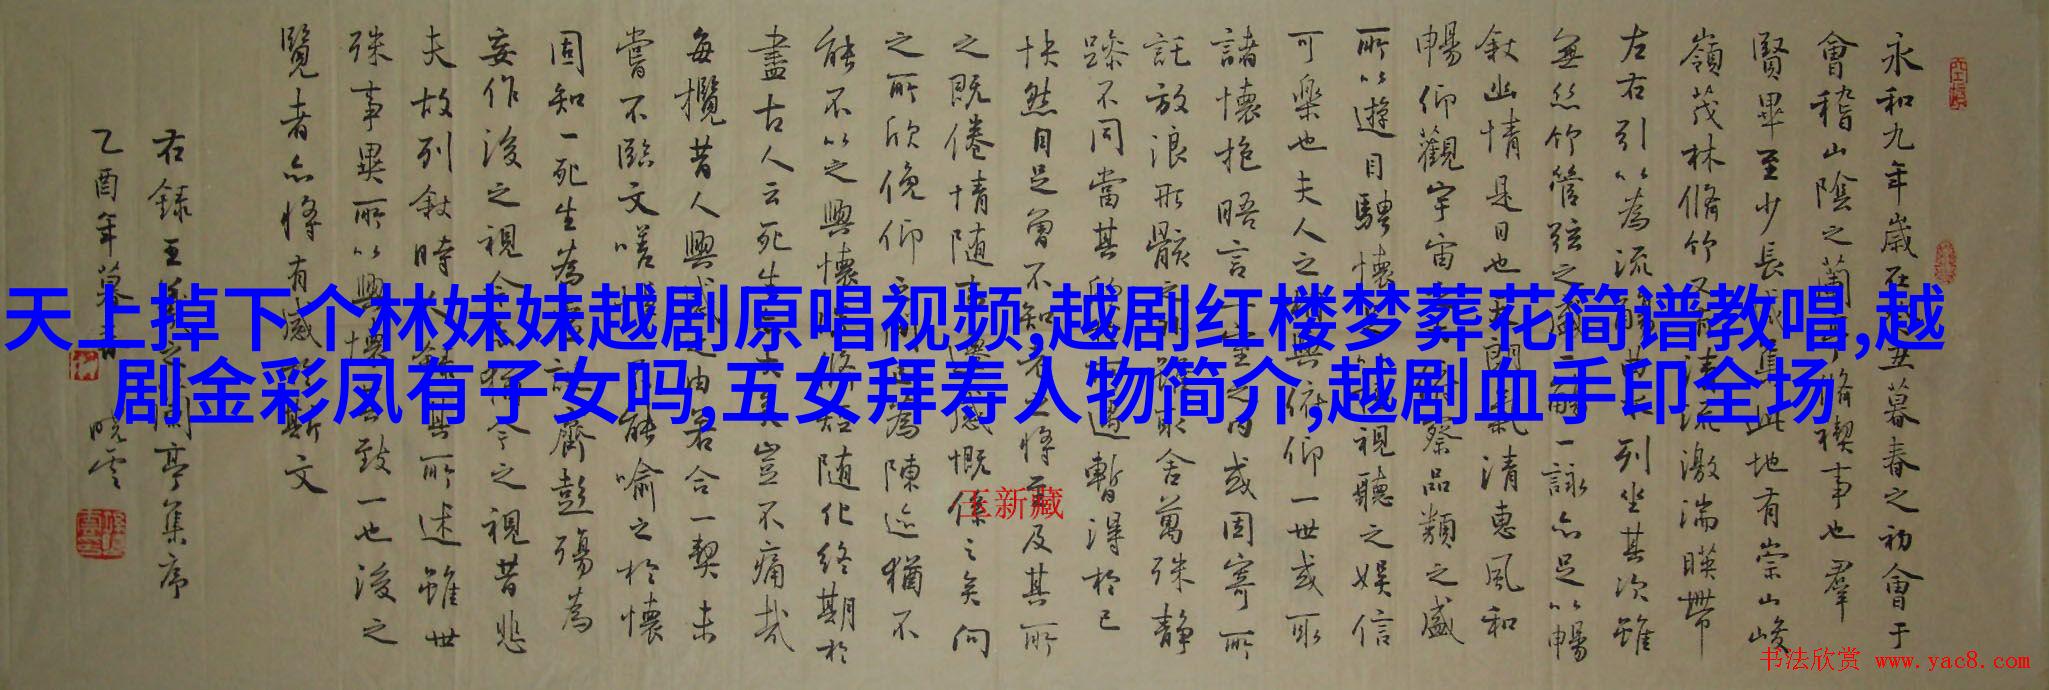 天上掉下个林妹妹越剧原唱视频,越剧红楼梦葬花简谱教唱,越
剧金彩凤有子女吗,五女拜寿人物简介,越剧血手印全场
永和九年歲在丑暮春之初會于
會稽山陰之蘭亭脩禊事也羣
賢畢至少長咸集此地有崇山峻
嶺茂林脩竹又有清流激湍暎帶
左右引以為流觴曲水列坐其次雖
無丝竹管弦之盛一觴一詠亦足以暢
叙幽情是日也天朗氣清惠風和
暢仰觀宇宙之大俯察品類之盛
所以遊目騁懷足以極視聽之娛信
可樂也夫人之相與俯仰一世或取
諸懷抱晤言一室之內或因寄所
託放浪形骸之外雖取舍萬殊静
躁不同當其欣於所遇暫得於己
快然自足曾不知老之將至及其所
之既倦情随事遷感慨係之矣向
之所欣俛仰之間已為陳迹猶不
能不以之興懷況脩短随化終期於
盡古人云死生亦大矣豈不痛哉
每攬昔人興感之由若合一契未
嘗不臨文嗟悼不能喻之於懷
固知一死生為虛誕齊彭殤為
妄作後之視今亦猶今之視昔悲
夫故列叙時人錄其所述雖世
殊事異所以興懷其致一也後之
覽者亦將有感於斯文
右錄王羲之蘭亭集序
乙酉年暮春晓雲
王新藏
书法欣赏 www.yac8.com